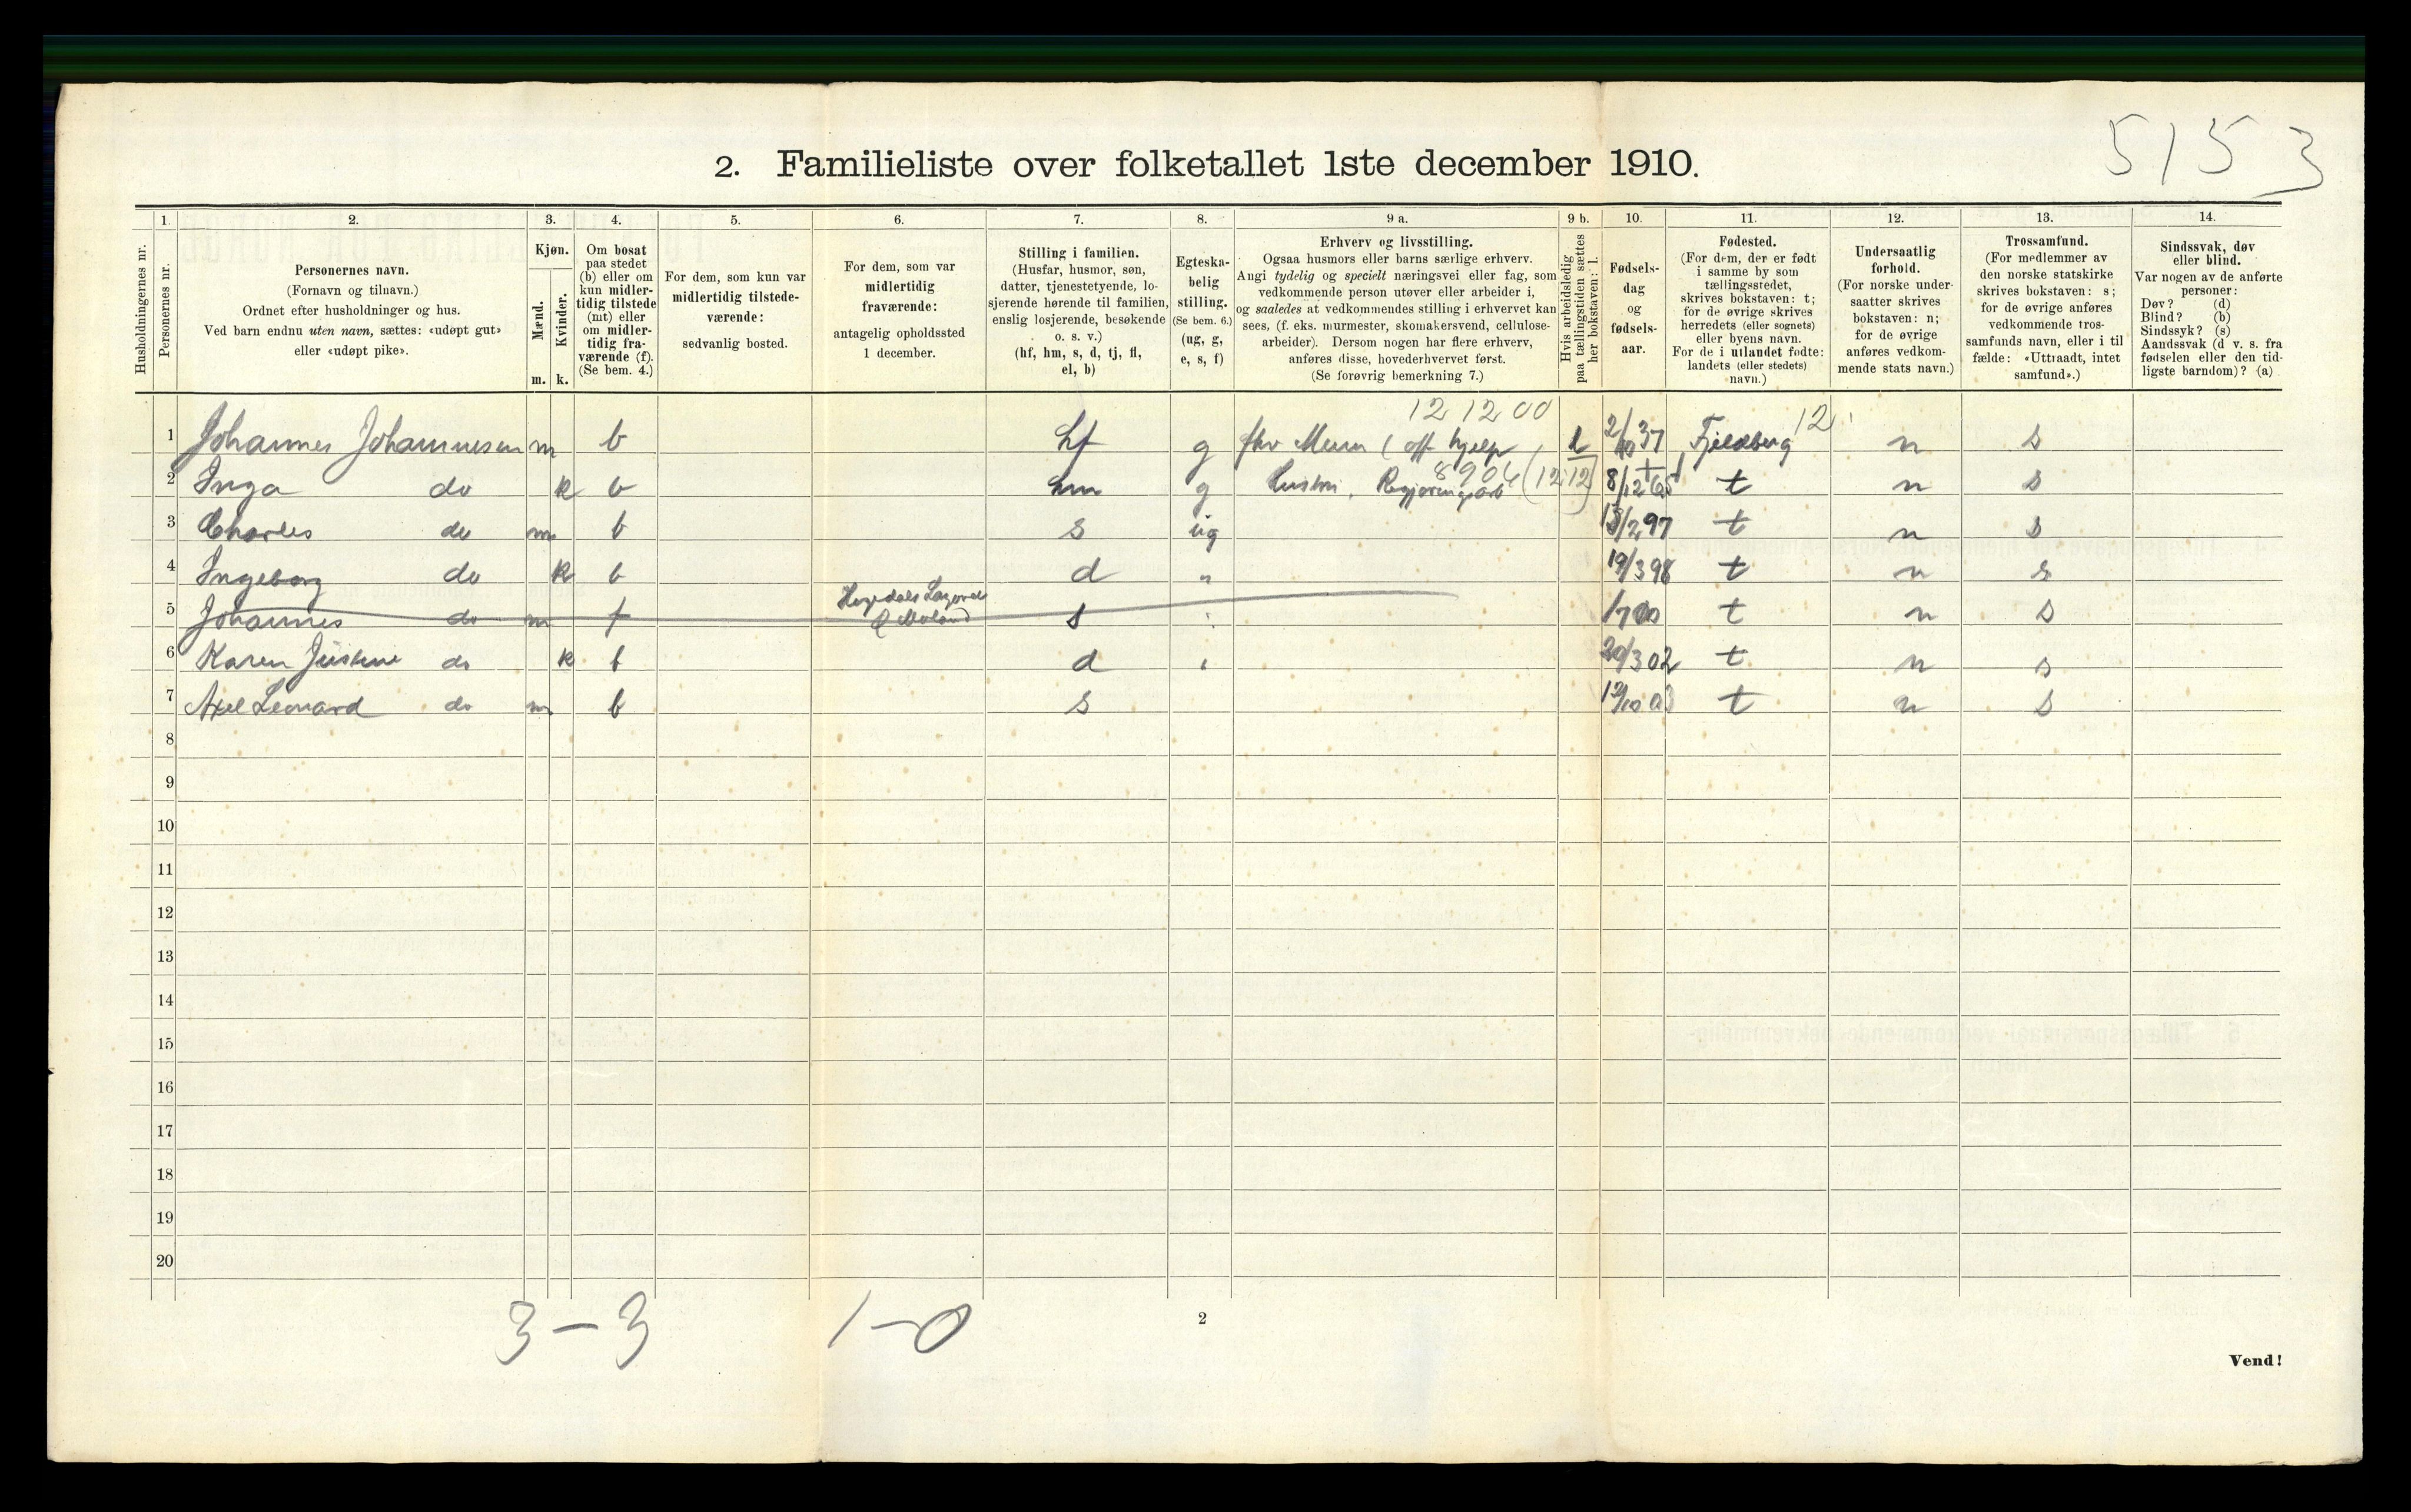 5153
2. Familieliste over folketallet 1ste december 1910.
Husholdningernes nr.
1. Personernes nr.
2. Personernes navn. (Fornavn og tilnavn.) Ordnet efter husholdninger og hus. Ved barn endnu uten navn, sættes: «udøpt gut» eller «udøpt pike».
3. Kjøn. Mænd. m. Kvinder. k.
4. Om bosat paa stedet (b) eller om kun midler-tidig tilstede (mt) eller om midler-tidig fra-værende (f). (Se bem. 4.)
5. For dem, som kun var midlertidig tilstede-værende: sedvanlig bosted.
6. For dem, som var midlertidig fraværende: antagelig opholdssted 1 december.
7. Stilling i familien. (Husfar, husmor, søn, datter, tjenestetyende, lo-sjerende hørende til familien, enslig losjerende, besøkende o. s. v.) (hf, hm, s, d, tj, fl, el, b)
8. Egteska-belig stilling. (Se bem. 6.) (ug, g, e, s, f)
9 a. Erhverv og livsstilling. Ogsaa husmors eller barns særlige erhverv. Angi tydelig og specielt næringsvei eller fag, som vedkommende person utøver eller arbeider i, og saaledes at vedkommendes stilling i erhvervet kan sees, (f. eks. murmester, skomakersvend, cellulose-arbeider). Dersom nogen har flere erhverv, anføres disse, hovederhvervet først. (Se forøvrig bemerkning 7.)
9 b. Hvis arbeidsledig paa tællingstiden sættes her bokstaven: l.
10. Fødsels-dag og fødsels-aar.
11. Fødested. (For dem, der er født i samme by som tællingsstedet, skrives bokstaven: t; for de øvrige skrives herredets (eller sognets) eller byens navn. For de i utlandet fødte: landets (eller stedets) navn.)
12. Undersaatlig forhold. (For norske under-saatter skrives bokstaven: n; for de øvrige anføres vedkom-mende stats navn.)
13. Trossamfund. (For medlemmer av den norske statskirke skrives bokstaven: s; for de øvrige anføres vedkommende tros-samfunds navn, eller i til fælde: «Uttraadt, intet samfund».)
14. Sindssvak, døv eller blind. Var nogen av de anførte personer: Døv? (d) Blind? (b) Sindssyk? (s) Aandssvak (d v. s. fra fødselen eller den tid-ligste barndom)? (a)
12 12 00 12
1 Johannes Johannesen m b hf g fhv Murer (off hjelp l 2/10 37 Fjeldberg n s
8904 (12.12)
2 Inga do k b hm g 8/12 65 t n s
3 Charles do m b s ug 13/2 97 t n s
4 Ingeborg do k b d " 19/3 98 t n s
5 Johannes do m f s " t n s
6 Karen Justine do k b d " 20/3 02 t n s
7 Axel Leonard do m b s 19/10 03 t n s
8
9
10
11
12
13
14
15
16
17
18
19
20
3-3 1-0
2
Vend!